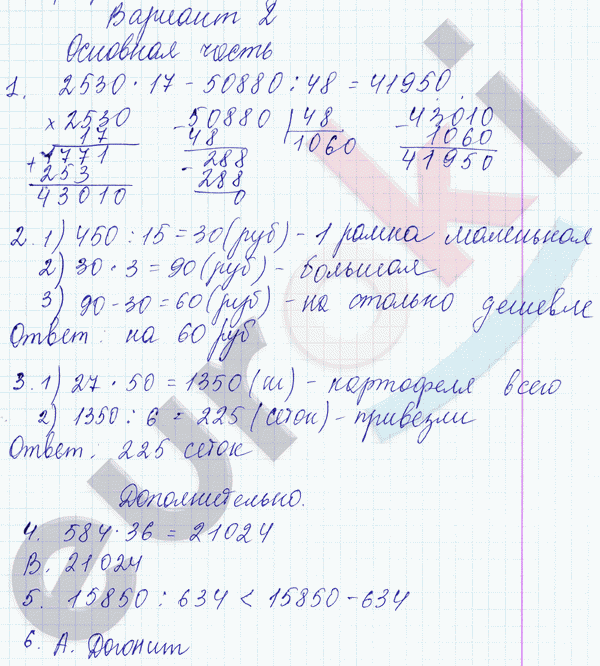 Вариант 2
Основная часть
1. 2530 · 17 - 50880 : 48 = 41950.
× 2530
17
+ 1771
253
43010
- 50880 | 48
48 1060
288
- 288
0
- 43010
1060
41950
2. 1) 450 : 15 = 30 (руб) - 1 рамка маленькая
2) 30 · 3 = 90 (руб) - большая
3) 90 - 30 = 60 (руб) - на столько дешевле
Ответ: на 60 руб
3. 1) 27 · 50 = 1350 (кг) - картофеля всего
2) 1350 : 6 = 225 (сеток) - привезли
Ответ: 225 сеток
Дополнительно.
4. 584 · 36 = 21024
В. 21024
5. 15850 : 634 < 15850 - 634
6. А. Догонит
euroki